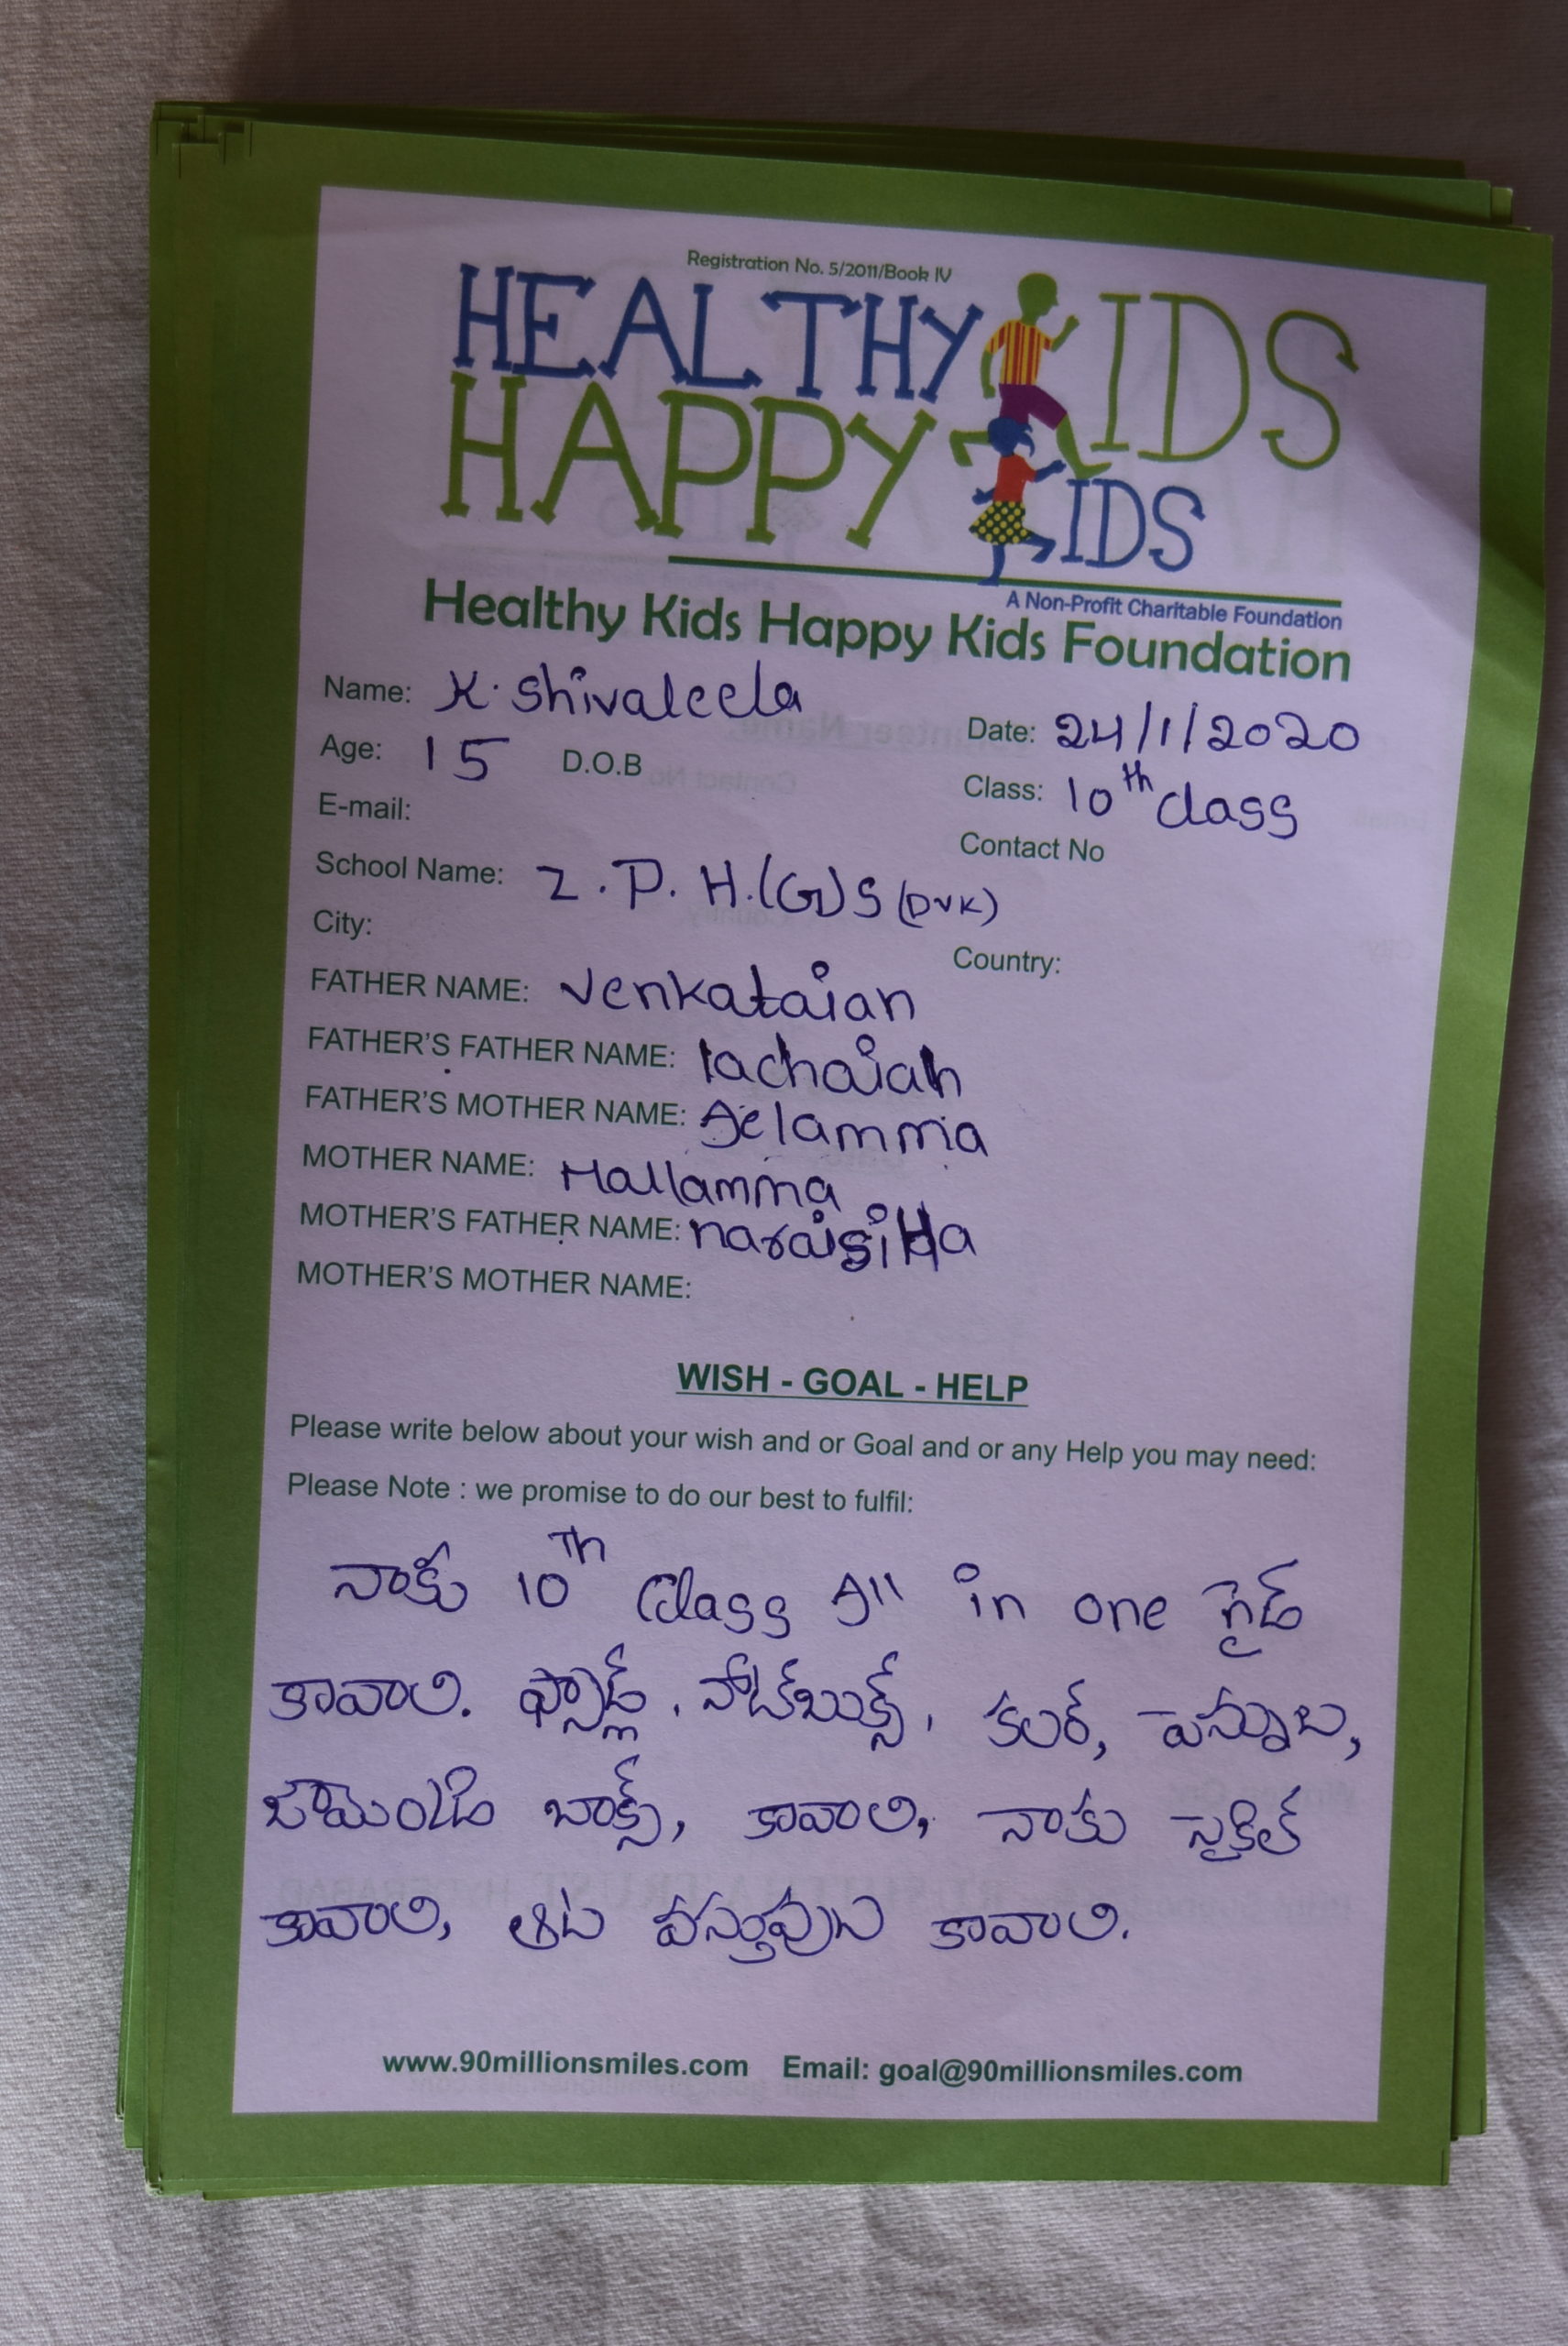 Registration No. 5/2011/Book IV
HEALTHY KIDS
HAPPY KIDS
A Non-Profit Charitable Foundation
Healthy Kids Happy Kids Foundation
Name: K. Shivaleela
Date: 24/1/2020
Age: 15 D.O.B
Class: 10th class
E-mail:
Contact No
School Name: Z.P.H.(G)S (DVK)
City:
Country:
FATHER NAME: Venkataiah
FATHER'S FATHER NAME: lachaiah
FATHER'S MOTHER NAME: Aelamma
MOTHER NAME: Mallamma
MOTHER'S FATHER NAME:
MOTHER'S MOTHER NAME:
WISH - GOAL - HELP
Please write below about your wish and or Goal and or any Help you may need:
Please Note : we promise to do our best to fulfil:
నాకు 10Th Class All in one గైడ్
కావాలి. ప్యాడ్, నోట్‌బుక్స్, కలర్, పెన్నుల,
బాక్స్, కావాలి, నాకు సైకిల్
కావాలి, ఆట వస్తువుల కావాలి.
www.90millionsmiles.com Email: goal@90millionsmiles.com